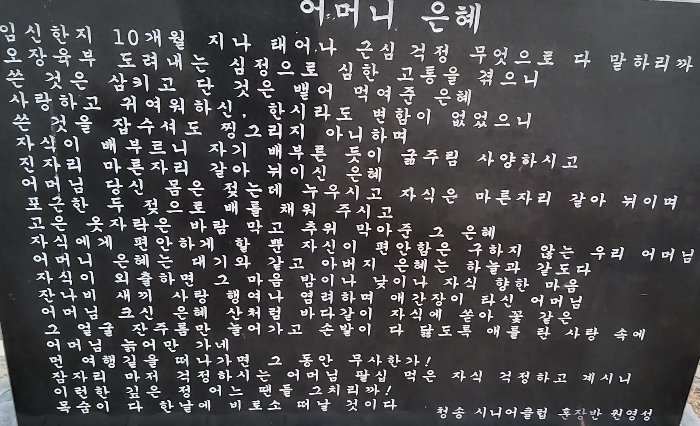 어머니 은혜
임신한지 10개월 지나 태어나 근심 걱정 무엇으로 다 말하리까
오장육부 도려내는 심정으로 심한 고통을 겪으니
쓴 것은 삼키고 단 것은 뱉어 먹여준 은혜
사랑하고 귀여워하신, 한시라도 변함이 없었으니
쓴 것을 잡수셔도 찡그리지 아니하며
자식이 배부르니 자기 배부른 듯이 굶주림 사양하시고
진자리 마른자리 갈아 뉘이신 은혜
어머님 당신 몸은 젖는데 누우시고 자식은 마른자리 갈아 뉘이며
포근한 두 젖으로 배를 채워 주시고
고은 옷자락은 바람 막고 추위 막아준 그 은혜
자식에게 편안하게 할 뿐 자신이 편안함은 구하지 않는 우리 어머님
어머니 은혜는 대기와 같고 아버지 은혜는 하늘과 같도다
자식이 외출하면 그 마음 밤이나 낮이나 자식 향한 마음
잔나비 새끼 사랑 행여나 염려하며 애간장이 타신 어머님
어머님 크신 은혜 산처럼 바다같이 자식에 쏟아 꽃 같은
그 얼굴 잔주름만 늘어가고 손발이 다 닳도록 애를 탄 사랑 속에
어머님 늙어만 가네
먼 여행길을 떠나가면 그 동안 무사한가!
잠자리 마저 걱정하시는 어머님 팔십 먹은 자식 걱정하고 계시니
이런한 깊은 정 어느 땐들 그치리까!
목숨이 다 한날에 비로소 떠날 것이다
청송 시니어클럽 훈장반 원영성